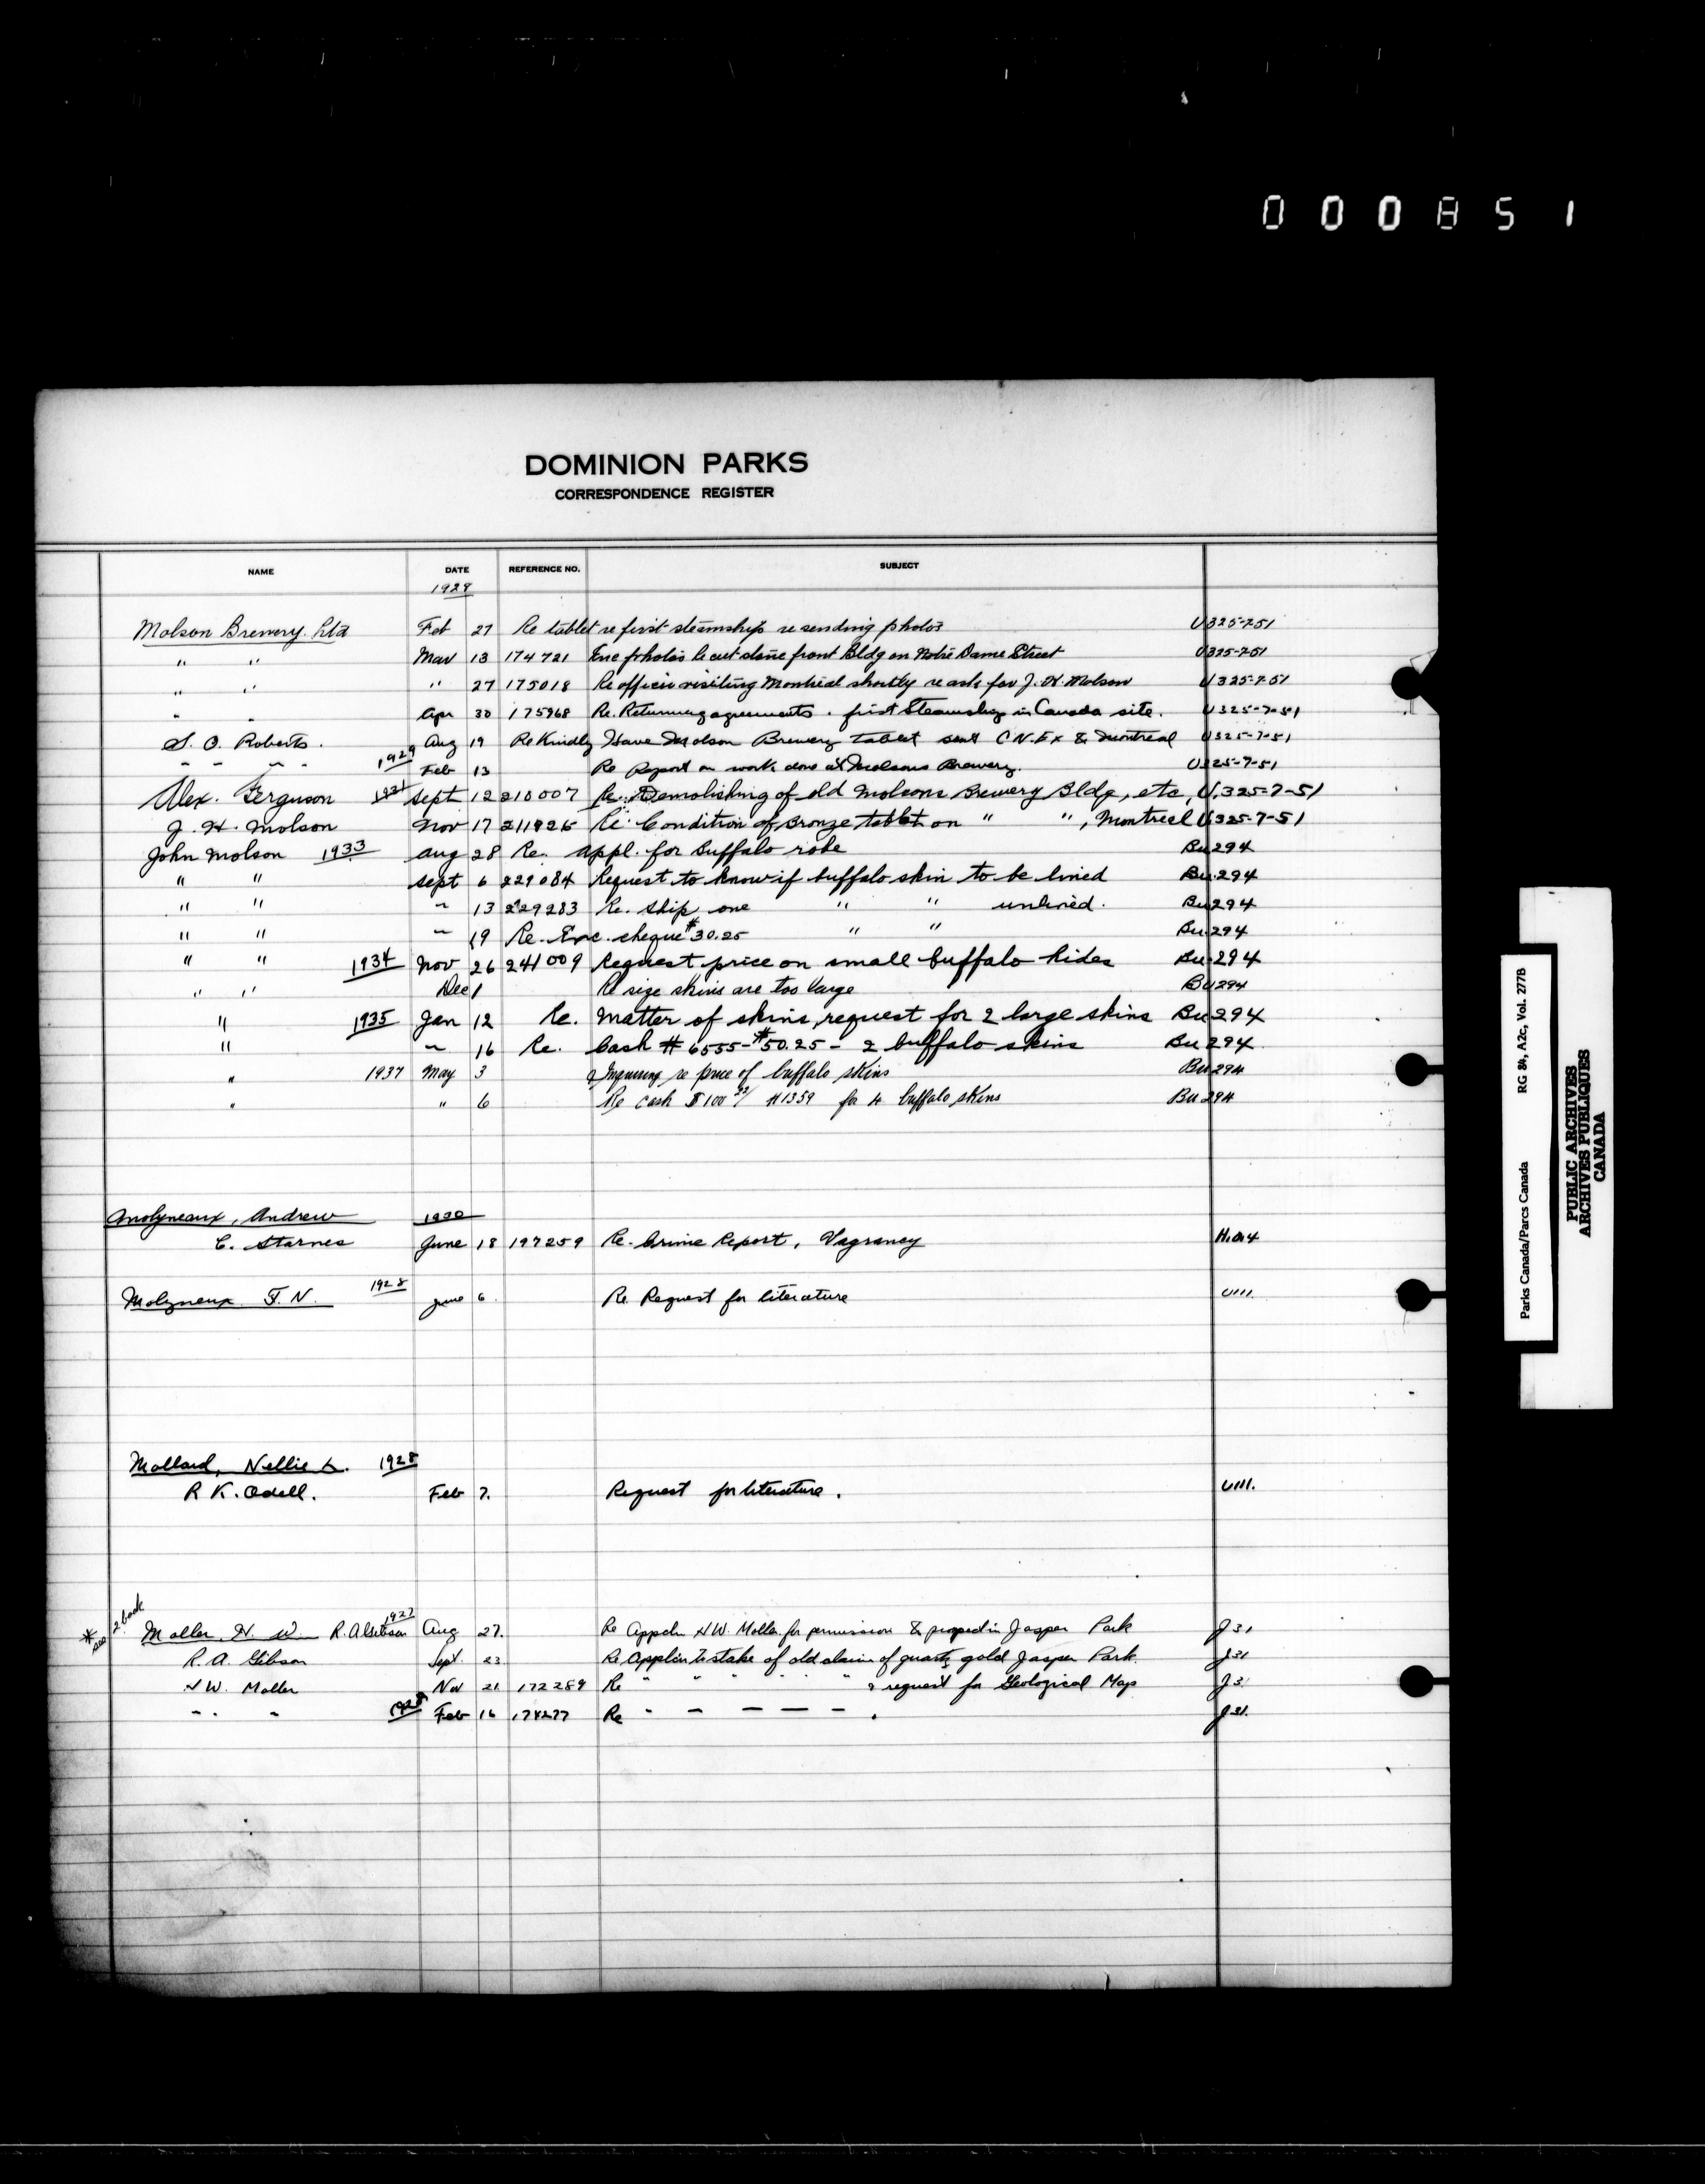 000851
DOMINION PARKS
CORRESPONDENCE REGISTER
NAME DATE REFERENCE NO. SUBJECT
1928
Molson Brewery Ltd Feb 27 Re tablet re first steamship re sending photos U325-7-51
" " Mar 13 174721 Enc photos le cut stone front Bldg on Notre Dame Street U325-7-51
" " " 27 175018 Re officer visiting Montreal shortly re ask for J. H. Molson U325-7-51
" " Apr 30 175968 Re. Returning agreements. first Steamship in Canada site. U325-7-51
S. O. Roberts. Aug 19 Re Kindly Have Molson Brewery tablet sent C.N.Ex & Montreal U325-7-51
" " " 1929 Feb 13 Re Report on work done at Molsons Brewery. U325-7-51
Alex. Ferguson 1931 Sept 12 210007 Re. Demolishing of old Molsons Brewery Bldg, etc, U.325-7-51
J. H. Molson Nov 17 211926 Re. Condition of Bronze tablet on " ", Montreal U325-7-51
John Molson 1933 Aug 28 Re. appl. for Buffalo robe Bu294
" " Sept 6 229084 Request to know if buffalo skin to be lined Bu294
" " " 13 229283 Re. Ship one " " unlined. Bu294
" " " 19 Re. Enc. cheque $30.25 " " Bu294
" " 1934 Nov 26 241009 Request price on small buffalo hides Bu294
" " Dec 1 Re size skins are too large Bu294
" 1935 Jan 12 Re. Matter of skins, request for 2 large skins Bu294
" " 16 Re. Cash # 6555 - $50.25 - 2 buffalo skins Bu294
" 1937 May 3 Inquiring re price of buffalo skins Bu294
" " 6 Re cash $100 #1359 for 4 buffalo skins Bu294
Molyneaux, Andrew 1930
C. Starnes June 18 197259 Re. Crime Report, Vagrancy
Molyneux F. N. 1928 June 6. Re Request for literature U111.
Mollard, Nellie L. 1928
R K. Odell. Feb 7. Request for literature. U111.
* see 2 back
Moller, H. W. R. A. Gibson 1927 Aug 27. Re Appcln H.W. Moller for permission & prospect in Jasper Park J31
R. A. Gibson Sept. 23 Re Applin to stake of old claim of quartz gold Jasper Park. J31
H W. Moller Nov 21 172289 Re " " " " " & request for Geological Map J31
" " " 1928 Feb 16 174277 Re " " " " " . J31.
Parks Canada/Parcs Canada RG 84, A2c, Vol. 277B
PUBLIC ARCHIVES
ARCHIVES PUBLIQUES
CANADA